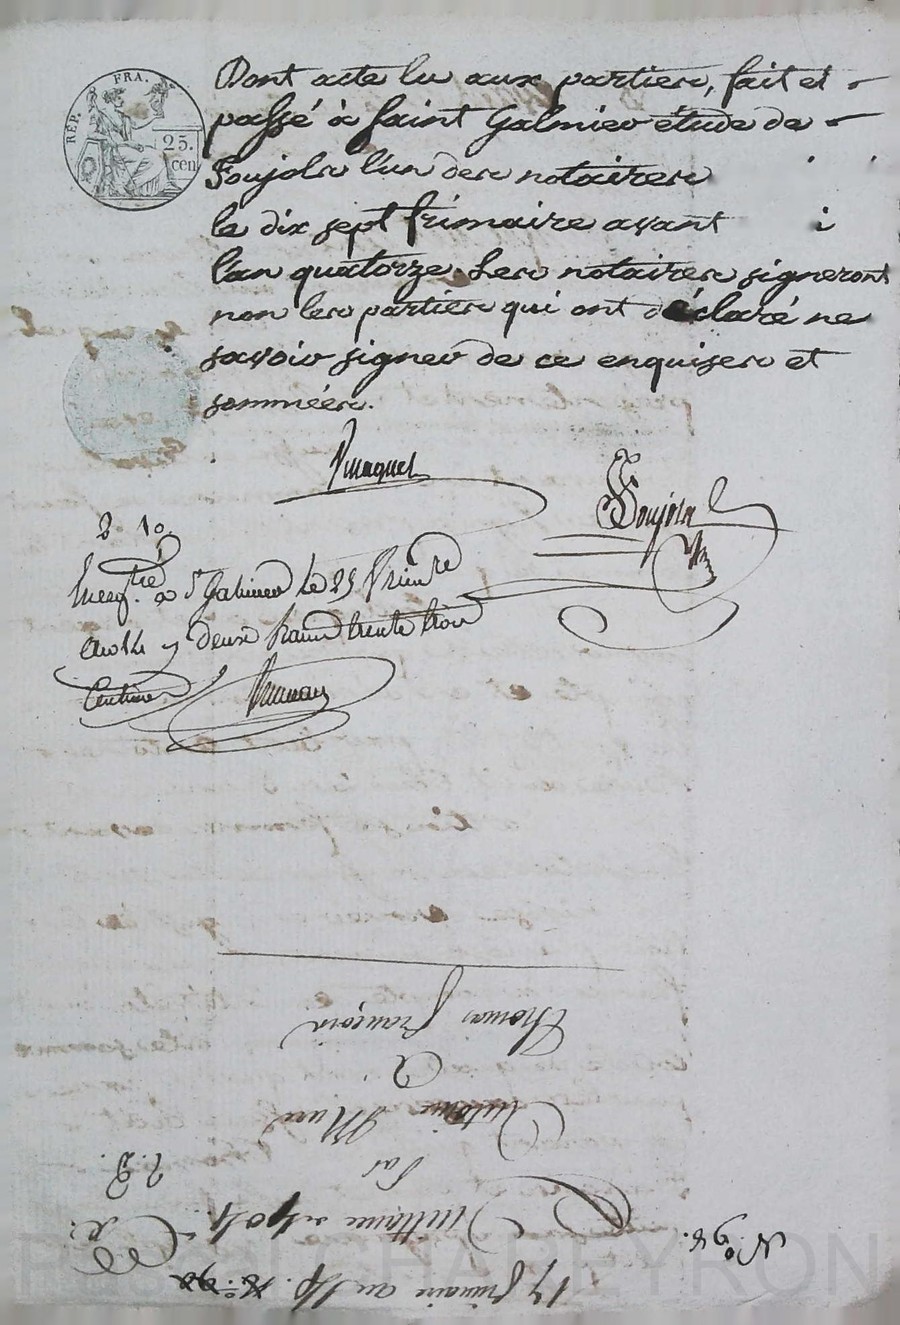 RÉP. FRA.
25.
cen
Dont acte lu aux parties, fait et
passé à Saint Galmier étude de
Soujols l'un des notaires
le dix sept frimaire avant
l'an quatorze. Les notaires signeront
non les parties qui ont déclaré ne
savoir signer de ce enquises et
sommées.
Soujols
Enreg.tré a St Galmier le 25 frimre
an 14 deux francs trente trois
Centimes
17 frimaire an 14.
N.o 98.
Quittance de 404
Par
Antoine
A
Thomas françois
CHAREYRON